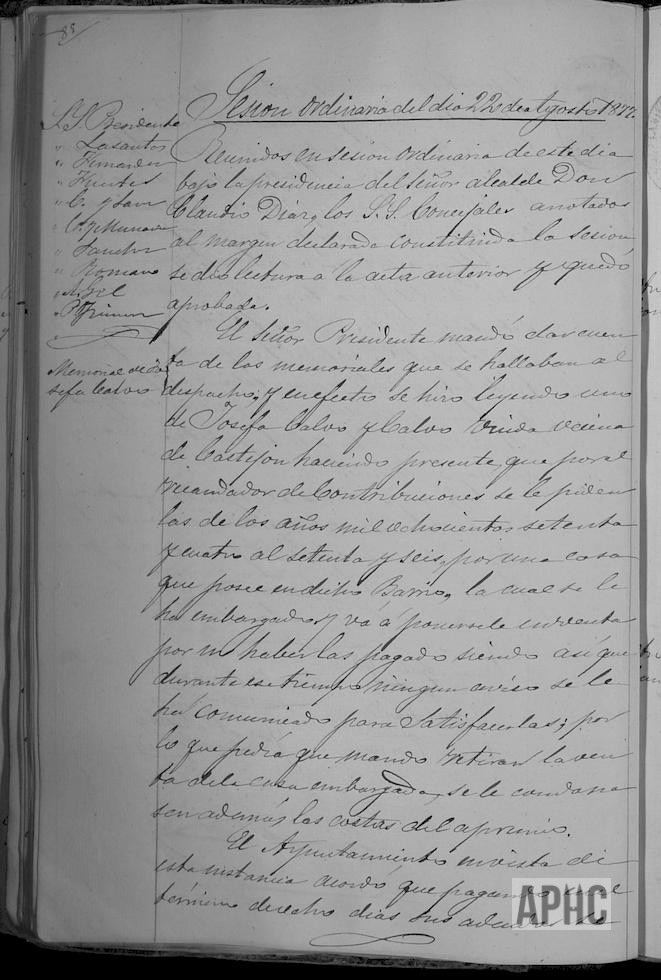 85
Sesion ordinaria del dia 22 de Agosto 1877.
S.S. Presidente
" Lasantas
" Fernandez
" Fuentes
" Sanchez
" Romano
" A. Gil
Reunidos en sesion ordinaria de este dia
bajo la presidencia del Señor Alcalde Don
Claudio Diaz, y los S.S. Concejales anotados
al margen declarada constituida la sesion,
se dio lectura a la acta anterior y quedó
aprobada.
Memorial de Jo-
sefa Calvo
El Señor Presidente mandó dar cuen-
ta de los memoriales que se hallaban al
despacho, y en efecto se hizo leyendo uno
de Josefa Calvo y Calvo viuda vecina
de Castejon haciendo presente, que por el
recaudador de Contribuciones se le piden
las de los años mil ochocientos setenta
y cuatro al setenta y seis, por una casa
que posee en dicho Barrio, la cual se le
ha embargado y vá á ponersele en venta
por no haberlas pagado siendo asi que
durante ese tiempo ningun aviso se le
ha comunicado para satisfacerlas; por
lo que pedia que mando retirar la ven-
ta de la casa embargada, se le condona
sen además las costas del apremio.
El Ayuntamiento en vista de
esta instancia acordó, que pagando en el
término de ocho dias sus adeudos se
APHC